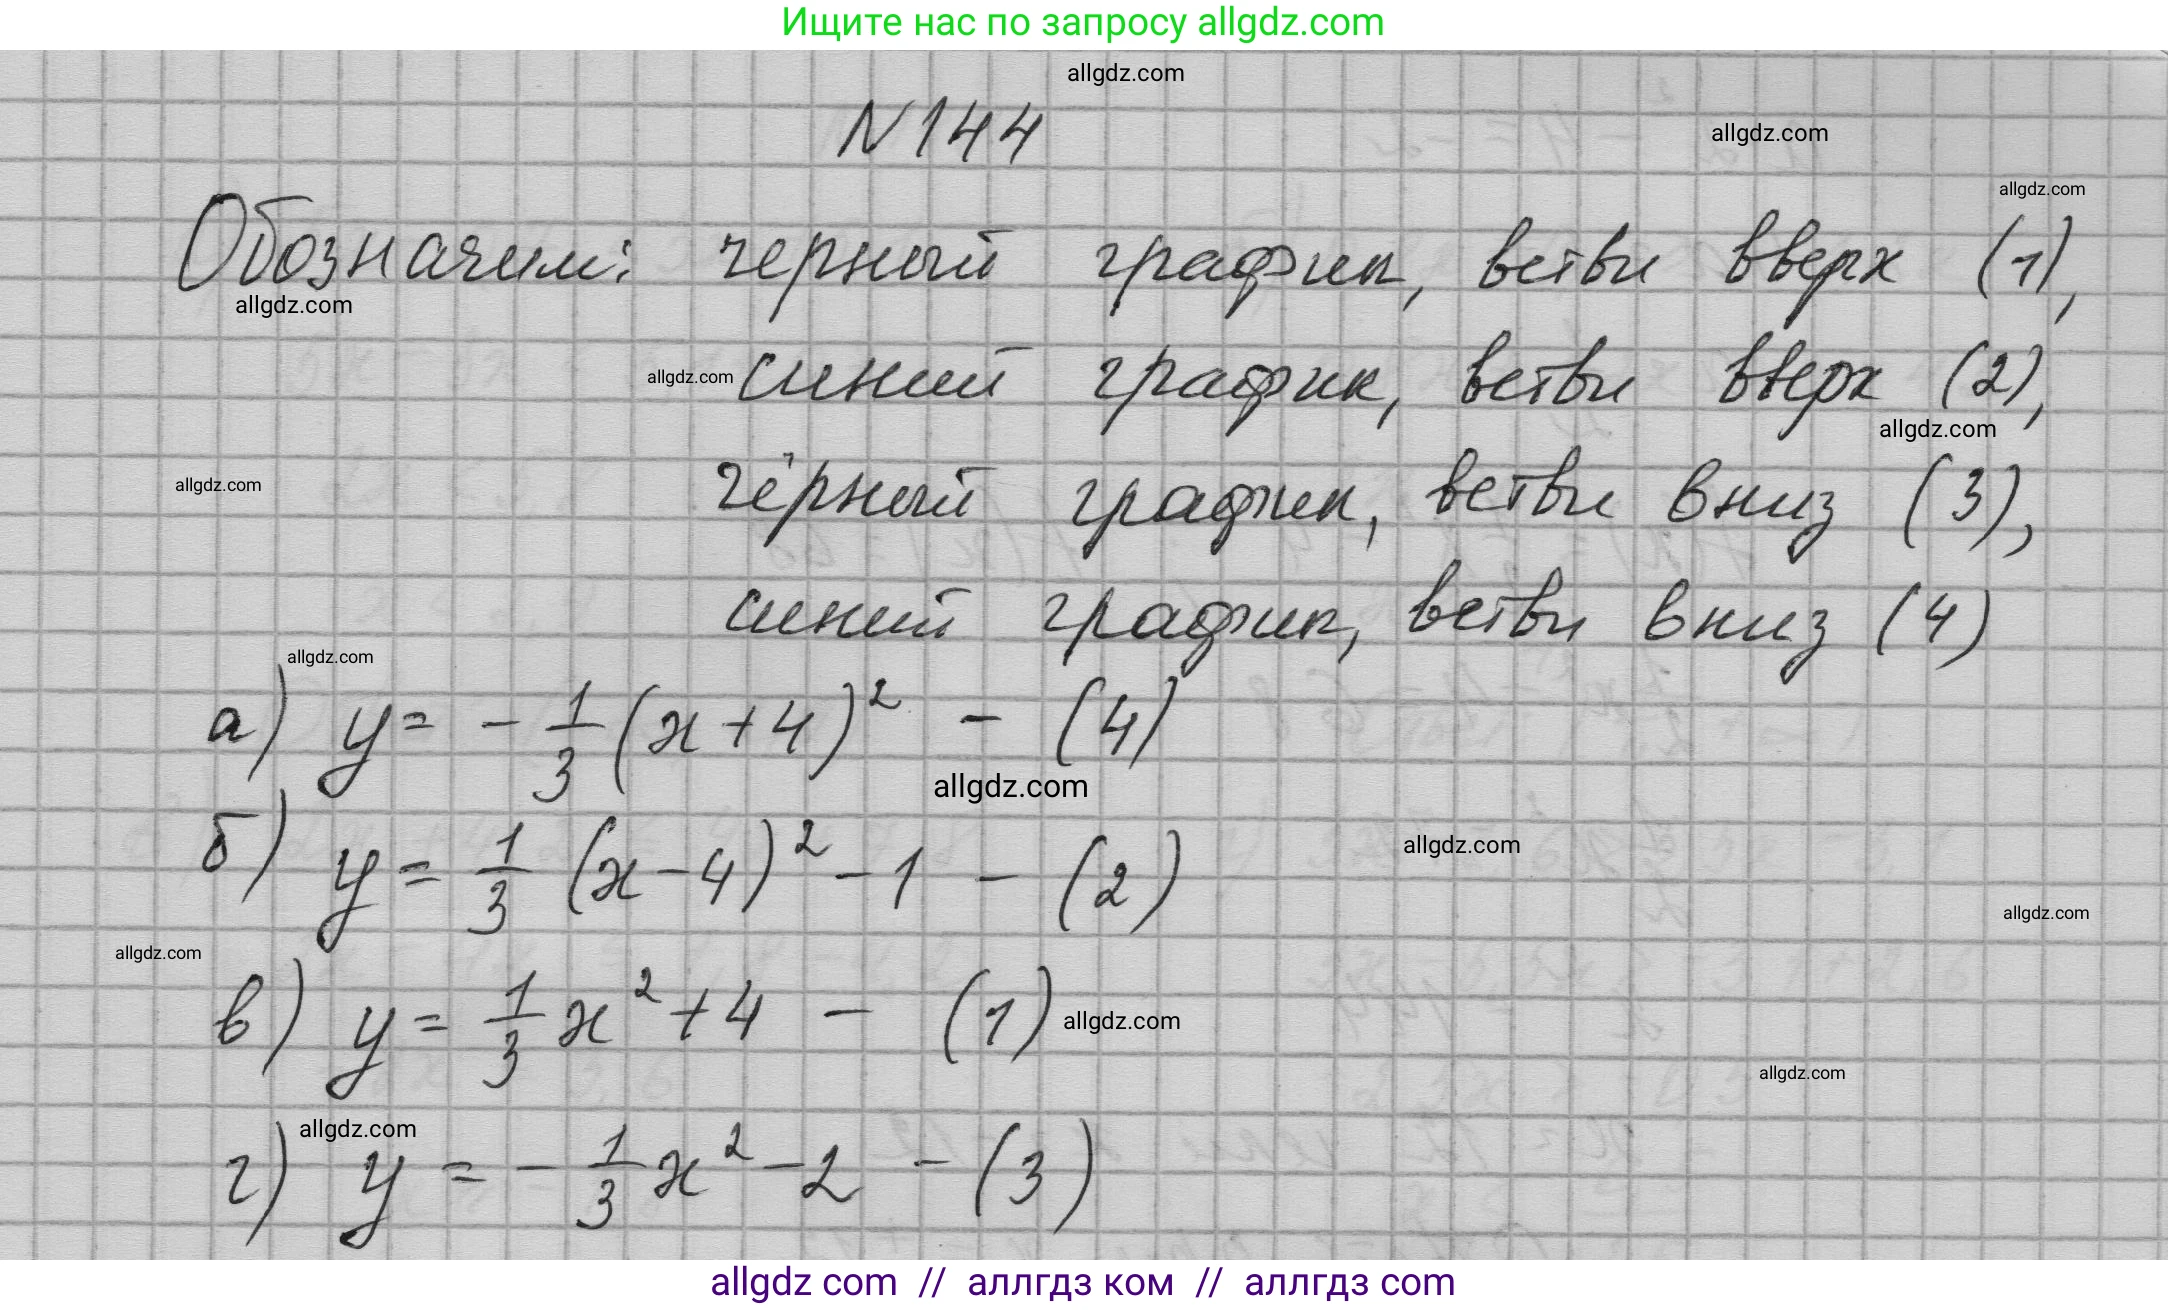 Ищите нас по запросу allgdz.com
allgdz.com
N 144
allgdz.com
allgdz.com
Обозначим: черный график, ветви вверх (1),
allgdz.com
allgdz.com синий график, ветви вверх (2),
allgdz.com
allgdz.com
чёрный график, ветви вниз (3),
синий график, ветви вниз (4)
allgdz.com
а) y = - 1/3 (x + 4)² - (4)
allgdz.com
allgdz.com
б) y = 1/3 (x - 4)² - 1 - (2)
allgdz.com
allgdz.com
в) y = 1/3 x² + 4 - (1) allgdz.com
allgdz.com
allgdz.com
г) y = - 1/3 x² - 2 - (3)
allgdz com // аллгдз ком // аллгдз com